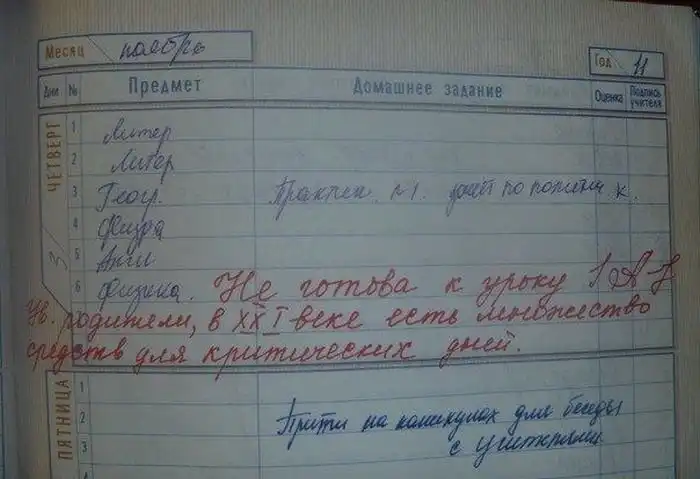 Месяц ноябрь Год 11
Дни № Предмет Домашнее задание Оценка Подпись учителя
ЧЕТВЕРГ 3
1 Литер
2 Литер
3 Геогр. Практич. №1.
4 Физра
5 Англ
6 Физика. Не готова к уроку
Ув. родители, в XXI веке есть множество
средств для критических дней.
ПЯТНИЦА
1
2 Прийти на каникулах для беседы
3 с учителями